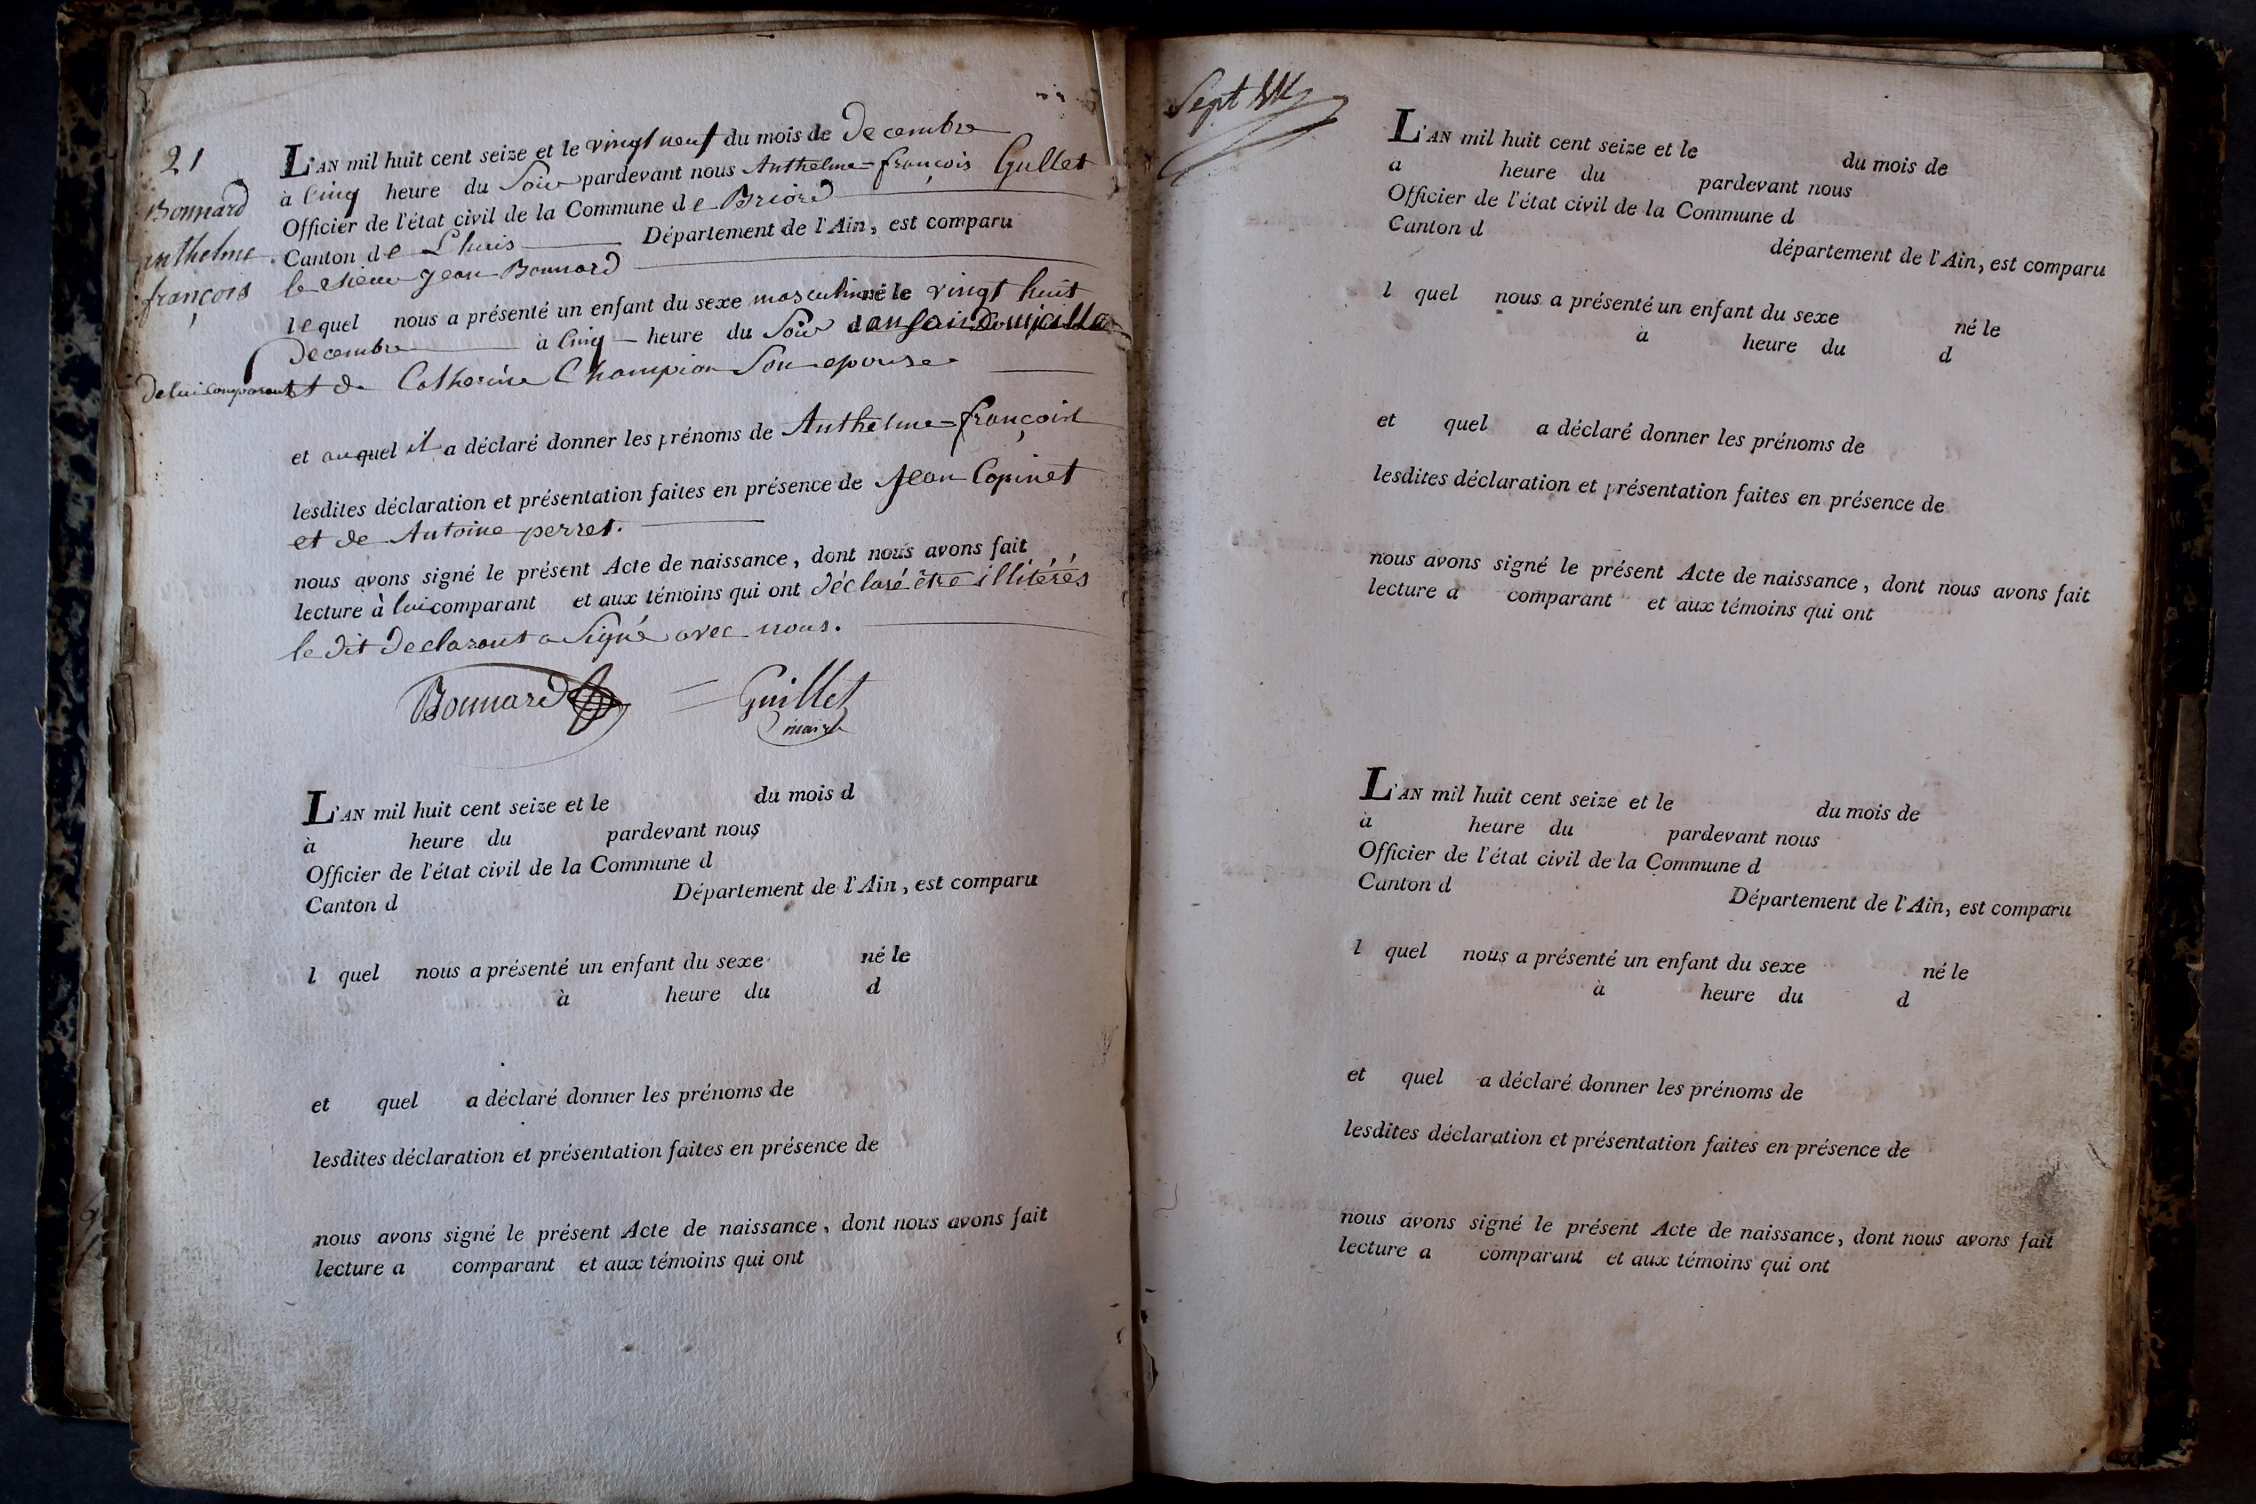 21
Bonnard
anthelme
françois
L'AN mil huit cent seize et le vingt neuf du mois de decembre
à cinq heure du Soir pardevant nous Anthelme=françois Gullet
Officier de l'état civil de la Commune de Briord
Canton de Lhuis Département de l'Ain, est comparu
le sieur Jean Bonnard
lequel nous a présenté un enfant du sexe masculin né le vingt huit
decembre à cinq heure du Soir
de lui comparant et de Catherine Champion Son epouse
et auquel il a déclaré donner les prénoms de Anthelme=françois
lesdites déclaration et présentation faites en présence de Jean Copinet
et de Antoine perret.
nous avons signé le présent Acte de naissance, dont nous avons fait
lecture à lui comparant et aux témoins qui ont déclaré être illitérés
le dit declarant a Signé avec nous.
Bonnard = Guillet
maire
L'AN mil huit cent seize et le du mois d
à heure du pardevant nous
Officier de l'état civil de la Commune d
Canton d Département de l'Ain, est comparu
l quel nous a présenté un enfant du sexe né le
à heure du d
et quel a déclaré donner les prénoms de
lesdites déclaration et présentation faites en présence de
nous avons signé le présent Acte de naissance, dont nous avons fait
lecture a comparant et aux témoins qui ont
Sept
L'AN mil huit cent seize et le du mois de
a heure du pardevant nous
Officier de l'état civil de la Commune d
Canton d département de l'Ain, est comparu
l quel nous a présenté un enfant du sexe né le
à heure du d
et quel a déclaré donner les prénoms de
lesdites déclaration et présentation faites en présence de
nous avons signé le présent Acte de naissance, dont nous avons fait
lecture a comparant et aux témoins qui ont
L'AN mil huit cent seize et le du mois de
à heure du pardevant nous
Officier de l'état civil de la Commune d
Canton d Département de l'Ain, est comparu
l quel nous a présenté un enfant du sexe né le
à heure du d
et quel a déclaré donner les prénoms de
lesdites déclaration et présentation faites en présence de
nous avons signé le présent Acte de naissance, dont nous avons fait
lecture a comparant et aux témoins qui ont